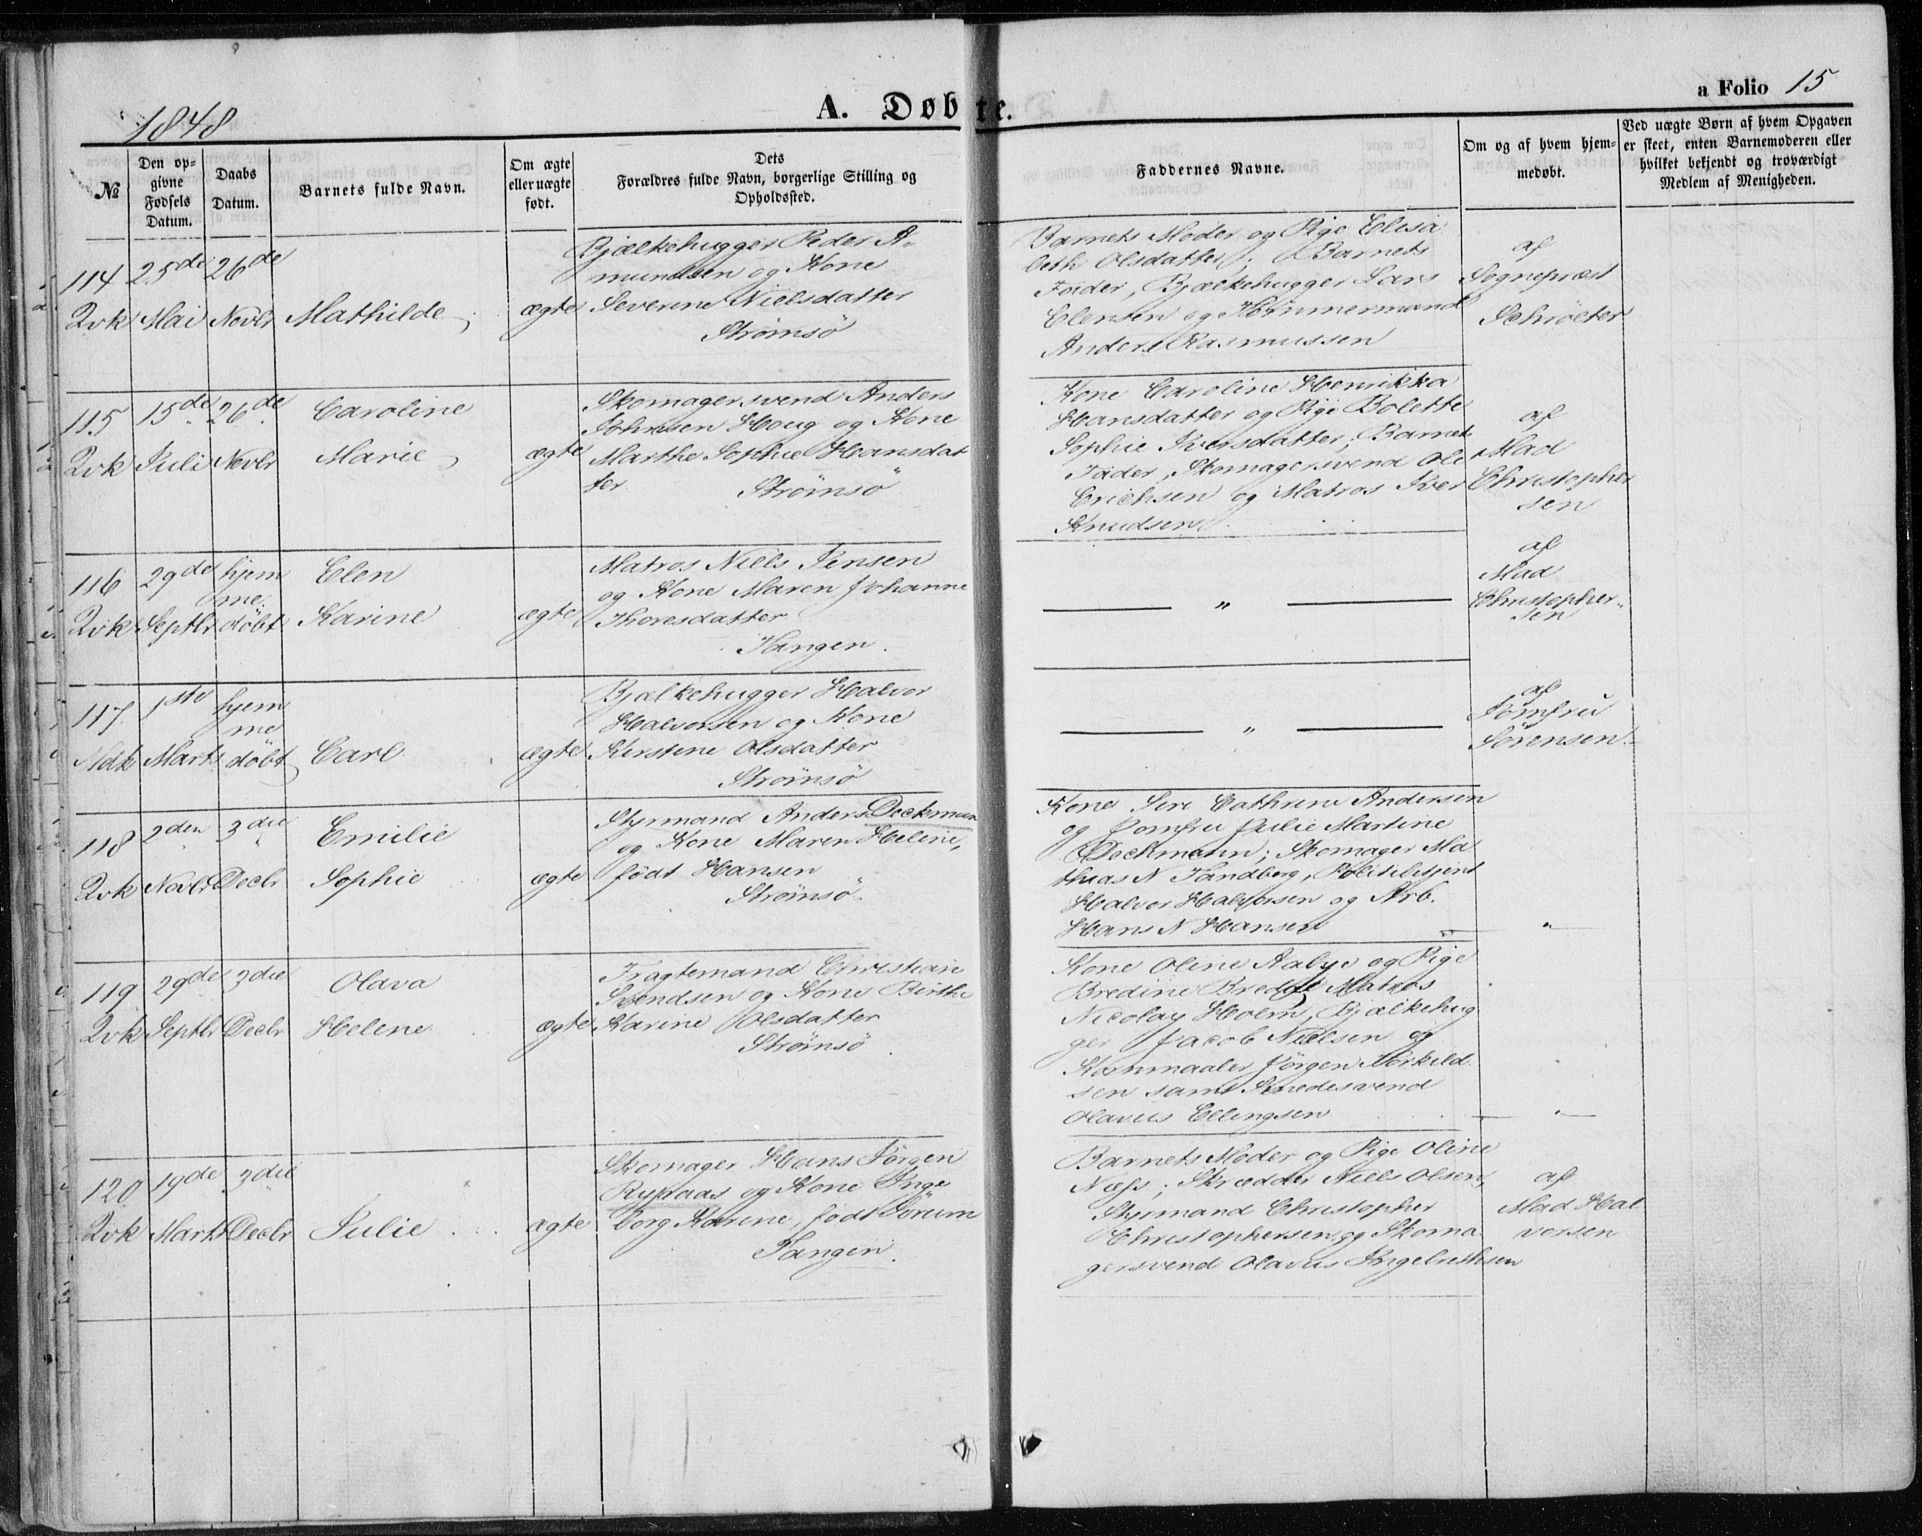 1848
A. Døbte.
a Folio 15
№
Den opgivne Fødsels Datum.
Daabs Datum.
Barnets fulde Navn.
Om ægte eller uægte født.
Dets Forældres fulde Navn, borgerlige Stilling og Opholdssted.
Faddernes Navne.
Om og af hvem hjemmedøbt.
Ved uægte Børn af hvem Opgaven er skeet, enten Barnemoderen eller hvilket bekjendt og troværdigt Medlem af Menigheden.
114 Qvk
25de Mai
26de Novbr
Mathilde
ægte
Bjælkehugger Peder A-
mundsen og Kone
Severine Nielsdatter
Strømsö
Barnets Moder og Pige Elisa
beth Olsdatter; Barnets
Fader, Bjælkehugger Lars
Elensen og Tømmermand
Anders Rasmussen
af
Sognepræst
Schröeter
115 Qvk
15de Juli
26de Novbr
Caroline
Marie
ægte
Skomagersvend Anders
Johnsen Houg og Kone
Marthe Sophie Hansdat
ter
Strømsö
Kone Caroline Henrikka
Hansdatter og Pige Bolette
Sophie Iversdatter; Barnets
Fader, Skomagersvend Ole
Erichsen og Matros Iver
Knudsen.
af
Mad
Christopher
sen
116 Qvk
29de Septbr
hjem
me
döbt
Elen
Karine
ægte
Matros Niels Jensen
og Kone Maren Johanne
Thoresdatter
Tangen.
"
af
Mad
Christopher-
sen
117. Mdk
1ste Marts
hjem
me
döbt
Carl
ægte
Bjælkehugger Halvor
Halvorsen og Kone
Kirstine Olsdatter
Strømsö
"
af
Jomfru
Sörensen
118 Qvk
2den Novbr
3die Decbr
Emilie
Sophie
ægte
Styrmand Anders Dockman
og Kone Maren Heline,
födt Hansen
Strømsö.
Kone Siri Cathrine Andersen
og Jomfru Julie Martine
Dockmann; Skomager Ma
thias N Tandberg, Politibetjent
Halvor Halvorsen og Arb.
Hans N Hansen
"
119 Qvk
29de Septbr
3die Decbr
Olava
Helene
ægte
Fragtemand Christian
Svendsen og Kone Birthe
Karine Olsdatter
Strømsö
Kone Oline Aabye og Pige
Bredine Matros
Nicolay Holm, Bjælkehug
ger Jacob Nielsen og
Kornmaaler Jörgen Törkild
sen samt Smedesvend
Olavus Ellingsen
"
120 Qvk
19de Marts
3die Decbr
Julie
ægte
Skomager Hans Jörgen
Rypaas og Kone Inge
borg Karine, födt Sörum
Tangen.
Barnets Moder og Pige Oline
Næss; Skrædder Niels Olsen,
Styrmand Christopher
Christophersen og Skoma
gersvend Olavus Ingebrethsen
af
Mad Hal
vorsen